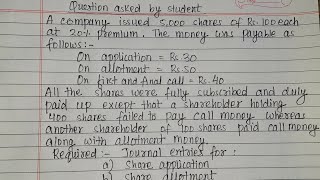 Question asked by student
A company issued 5,000 shares of Rs.100 each
at 20% premium. The money was payable as
follows:-
On application = Rs.30
On allotment = Rs.50
On first and final call = Rs.40
All the shares were fully subscribed and duly
paid up except that a shareholder holding
400 shares failed to pay call money whereas
another shareholder of 700 shares paid call money
along with allotment money.
Required:- Journal entries for:
a) Share application
b) Share allotment